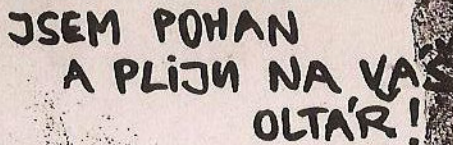 JSEM POHAN
A PLIJU NA VAŠ
OLTÁŘ!